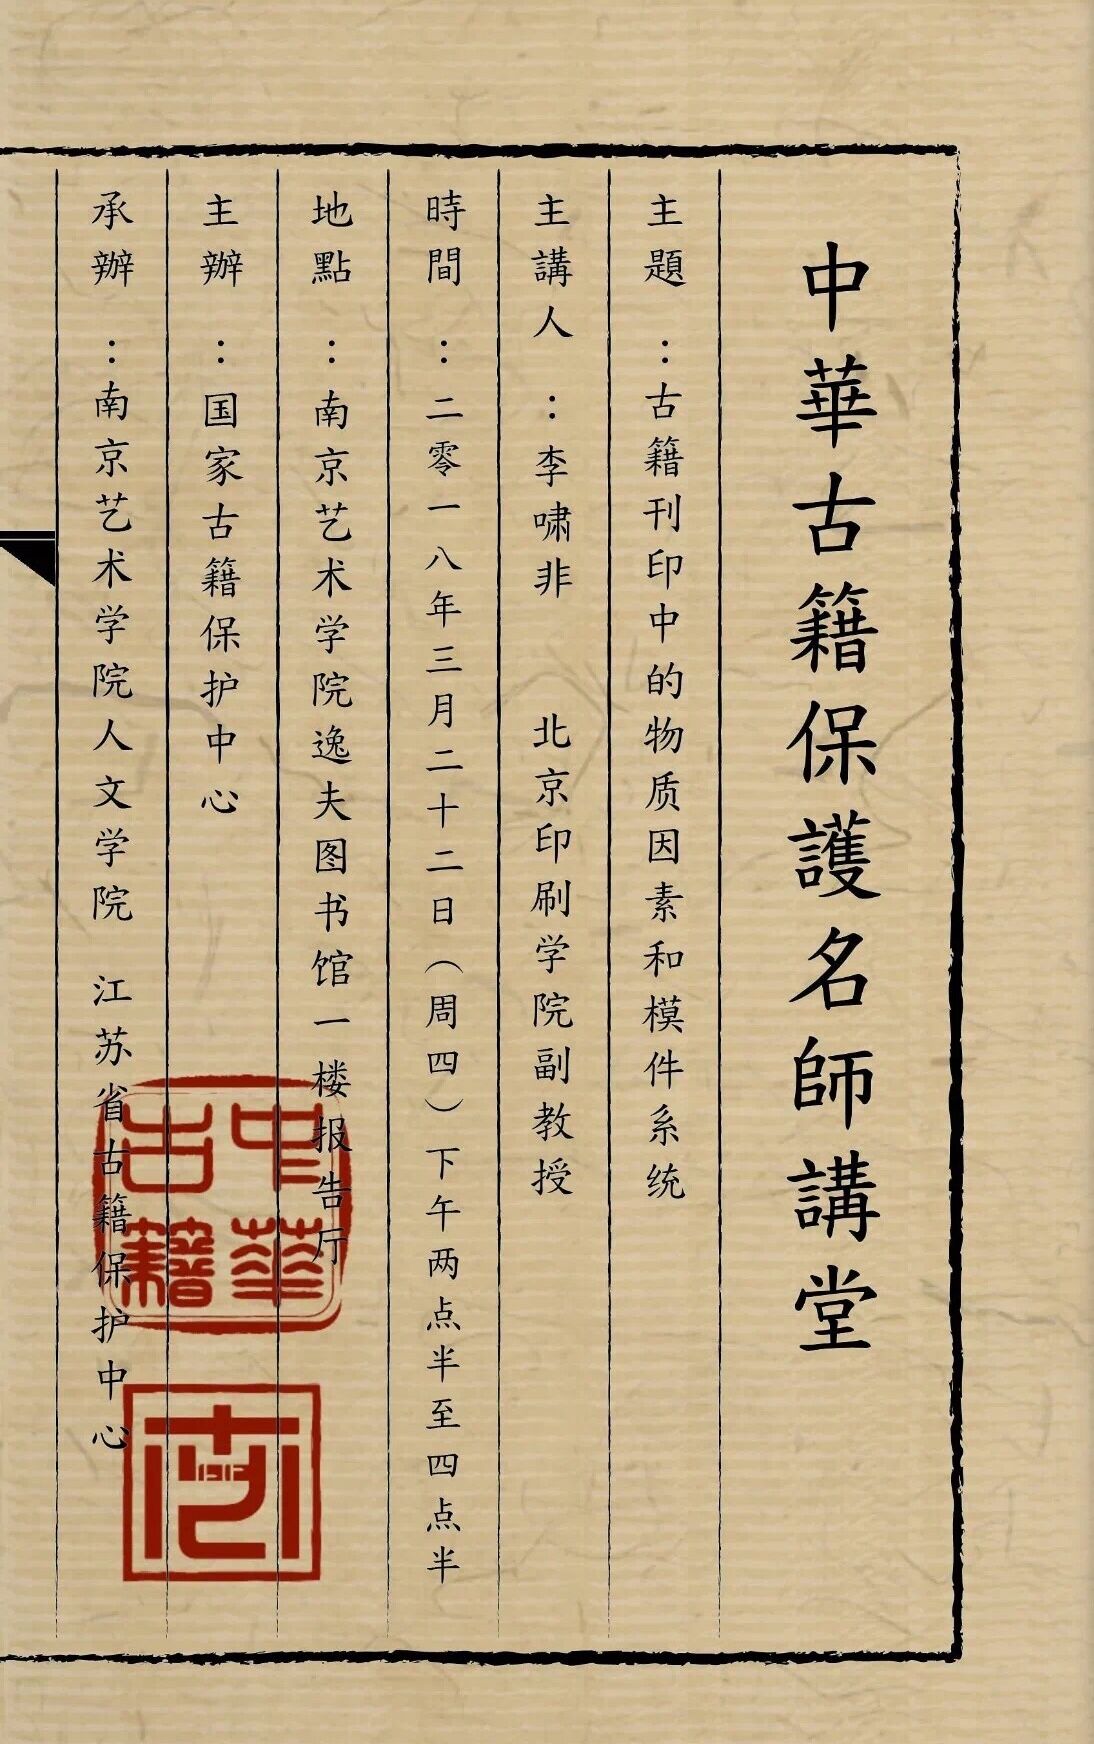 中華古籍保護名師講堂
主題：古籍刊印中的物质因素和模件系统
主講人：李啸非 北京印刷学院副教授
時間：二零一八年三月二十二日（周四）下午两点半至四点半
地點：南京艺术学院逸夫图书馆一楼报告厅
主辦：国家古籍保护中心
承辦：南京艺术学院人文学院 江苏省古籍保护中心
中華古籍
1912